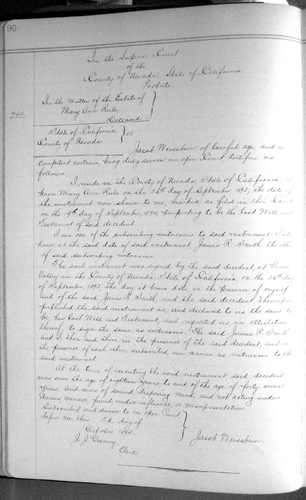 90
In the Superior Court
of the
County of Nevada, State of California.
Probate.
In the Matter of the Estate of
Mary Ann Rule,
Deceased.
State of California
County of Nevada } ss
Jacob Weissbein of lawful age, and a
competent witness, being duly sworn in open Court testifies as
follows:
I reside in the County of Nevada, State of California, I
knew Mary Ann Rule on the 26th day of September, 1893, the date of
the instrument now shown to me, marked as filed in this Court
on the day of September, purporting to be the last Will and
Testament of said decedent.
I am one of the subscribing witnesses to said instrument I also
knew at the said date of said instrument, James R. Smith the other
of said subscribing witnesses.
The said instrument was signed by the said decedent, at Grass
Valley in the County of Nevada, State of California, on the 26th day
of September, 1893, the day it bears date in the presence of myself
and of the said James R. Smith and the said decedent thereupon
published the said instrument as, and declared to us the same to
be, her last Will and Testament and requested us in attestation
thereof, to sign the same as witnesses. The said James R. Smith
and I then and there, in the presence of the said decedent, and in
the presence of each other, subscribed our names as witnesses to the
said instrument.
At the time of executing the said instrument said decedent
was over the age of eighteen years to wit of the age of forty
years, and was of sound disposing mind and not acting under
duress, menace, fraud, undue influence, or misrepresentation.
Subscribed and sworn to in open Court
before me, this 3d. day of
October,
Clerk
Jacob Weissbein